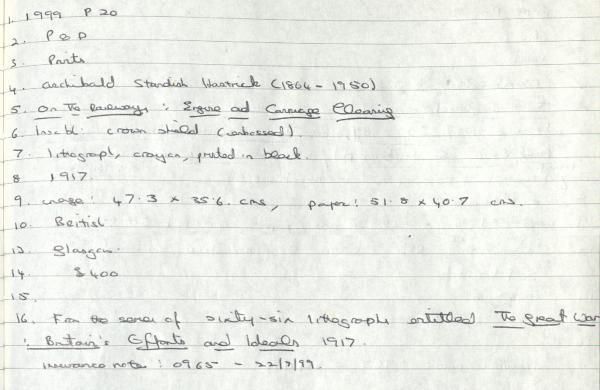 1. 1999 P 20
2. P & D
3. Prints
4. Archibald Standish Hartrick (1864 - 1950)
5. On The Railways : Engine and Carriage Cleaning
6. Inscbl: crown shield (embossed).
7. lithograph, crayon, printed in black.
8 1917.
9. image: 47.3 x 35.6. cms, paper: 51.8 x 40.7 cms.
10. British
13. Glasgow.
14. $400
15.
16. From the series of sixty-six lithographs entitled The Great War
: Britain's Efforts and Ideals 1917.
insurance note : 0965 - 22/7/99.